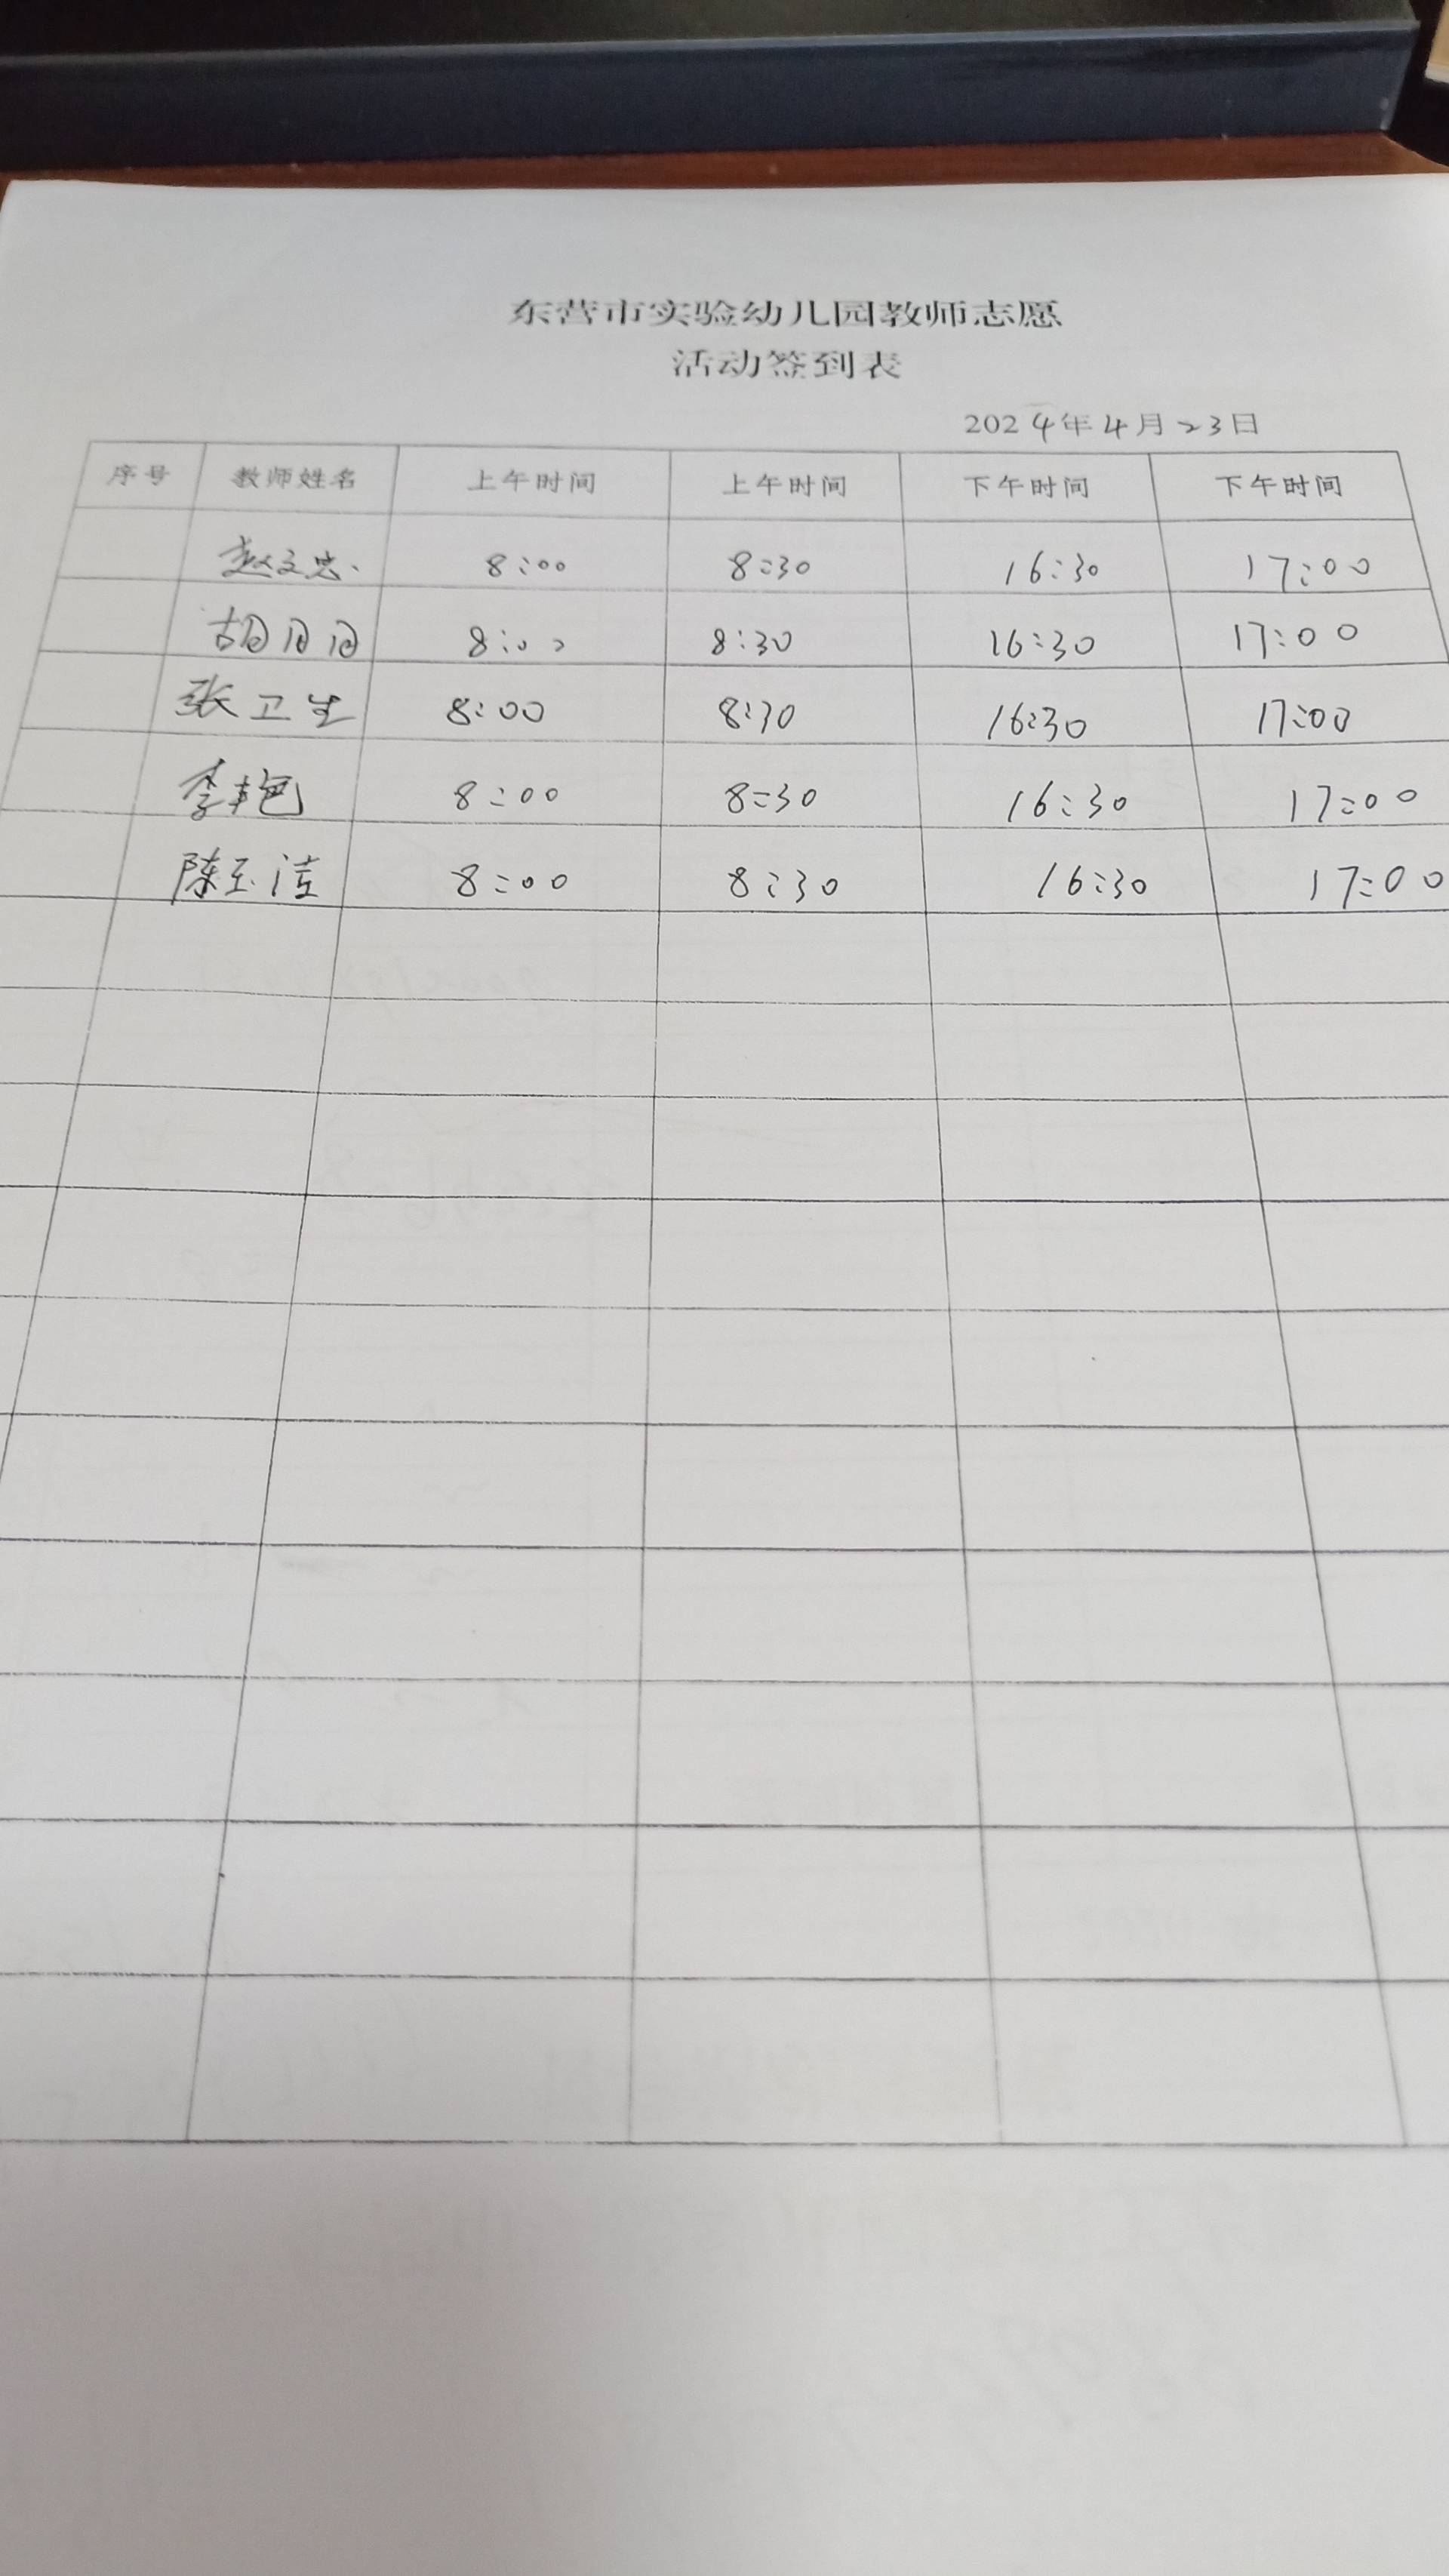 东营市实验幼儿园教师志愿
活动签到表
2024年4月23日
序号 教师姓名 上午时间 上午时间 下午时间 下午时间
赵文忠 8:00 8:30 16:30 17:00
胡月月 8:00 8:30 16:30 17:00
张卫生 8:00 8:30 16:30 17:00
李艳 8:00 8:30 16:30 17:00
陈玉洁 8:00 8:30 16:30 17:00